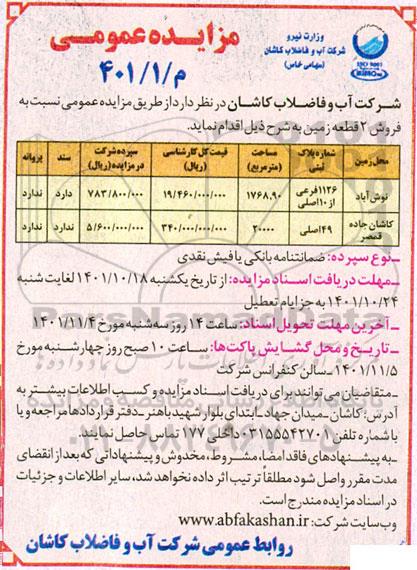 وزارت نیرو
شرکت آب و فاضلاب کاشان
(سهامی خاص)
مزایده عمومی
م/۴۰۱/۱/۱
شرکت آب و فاضلاب کاشان در نظر دارد از طریق مزایده عمومی نسبت به
فروش ۲ قطعه زمین به شرح ذیل اقدام نماید.
محل زمین | شماره پلاک ثبتی | مساحت (مترمربع) | قیمت کل کارشناسی (ریال) | سپرده شرکت در مزایده (ریال) | سند | پروانه
نوش آباد | ۱۱۲۶ فرعی از ۱۰ اصلی | ۱۷۶۸,۹۰ | ۱۹/۴۶۰/۰۰۰/۰۰۰ | ۷۸۳/۸۰۰/۰۰۰ | دارد | ندارد
کاشان جاده قمصر | ۴۹ اصلی | ۲۰۰۰۰ | ۳۴۰/۰۰۰/۰۰۰/۰۰۰ | ۵/۶۰۰/۰۰۰/۰۰۰ | ندارد | ندارد
ـ نوع سپرده: ضمانتنامه بانکی یا فیش نقدی
ـ مهلت دریافت اسناد مزایده: از تاریخ یکشنبه ۱۴۰۱/۱۰/۱۸ لغایت شنبه
۱۴۰۱/۱۰/۲۴ به جز ایام تعطیل
ـ آخرین مهلت تحویل اسناد: ساعت ۱۴ روز سه شنبه مورخ ۱۴۰۱/۱۱/۴
ـ تاریخ و محل گشایش پاکت‌ها: ساعت ۱۰ صبح روز چهارشنبه مورخ
۱۴۰۱/۱۱/۵ ـ سالن کنفرانس شرکت
ـ متقاضیان می‌توانند برای دریافت اسناد مزایده و کسب اطلاعات بیشتر به
آدرس: کاشان ـ میدان جهاد ـ ابتدای بلوار شهید باهنر ـ دفتر قراردادها مراجعه و یا
با شماره تلفن ۰۳۱۵۵۵۴۲۷۰۱ داخلی ۱۷۷ تماس حاصل نمایند.
ـ به پیشنهادهای فاقد امضا، مشروط، مخدوش و پیشنهاداتی که بعد از انقضای
مدت مقرر واصل شود مطلقاً ترتیب اثر داده نخواهد شد، سایر اطلاعات و جزئیات
در اسناد مزایده مندرج است.
وب سایت شرکت: www.abfakashan.ir
روابط عمومی شرکت آب و فاضلاب کاشان